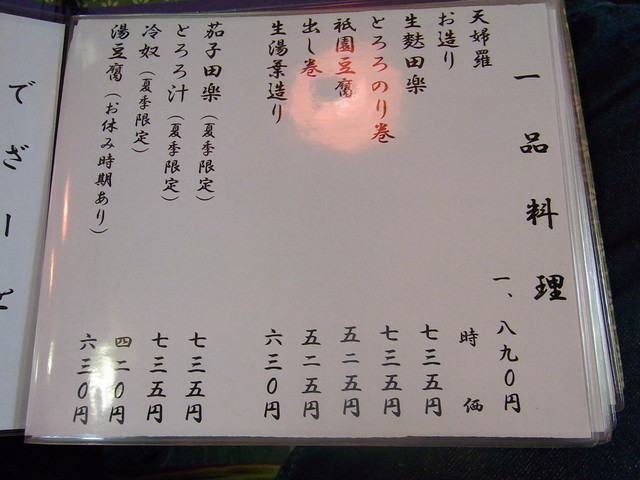 一品料理
天婦羅 一、八九〇円
お造り 時価
生麩田楽 七三五円
とろろのり巻 七三五円
祇園豆腐 五二五円
出し巻 五二五円
生湯葉造り 六三〇円
茄子田楽（夏季限定） 七三五円
とろろ汁（夏季限定） 七三五円
冷奴（夏季限定） 四二〇円
湯豆腐（お休み時期あり） 六三〇円
でざー